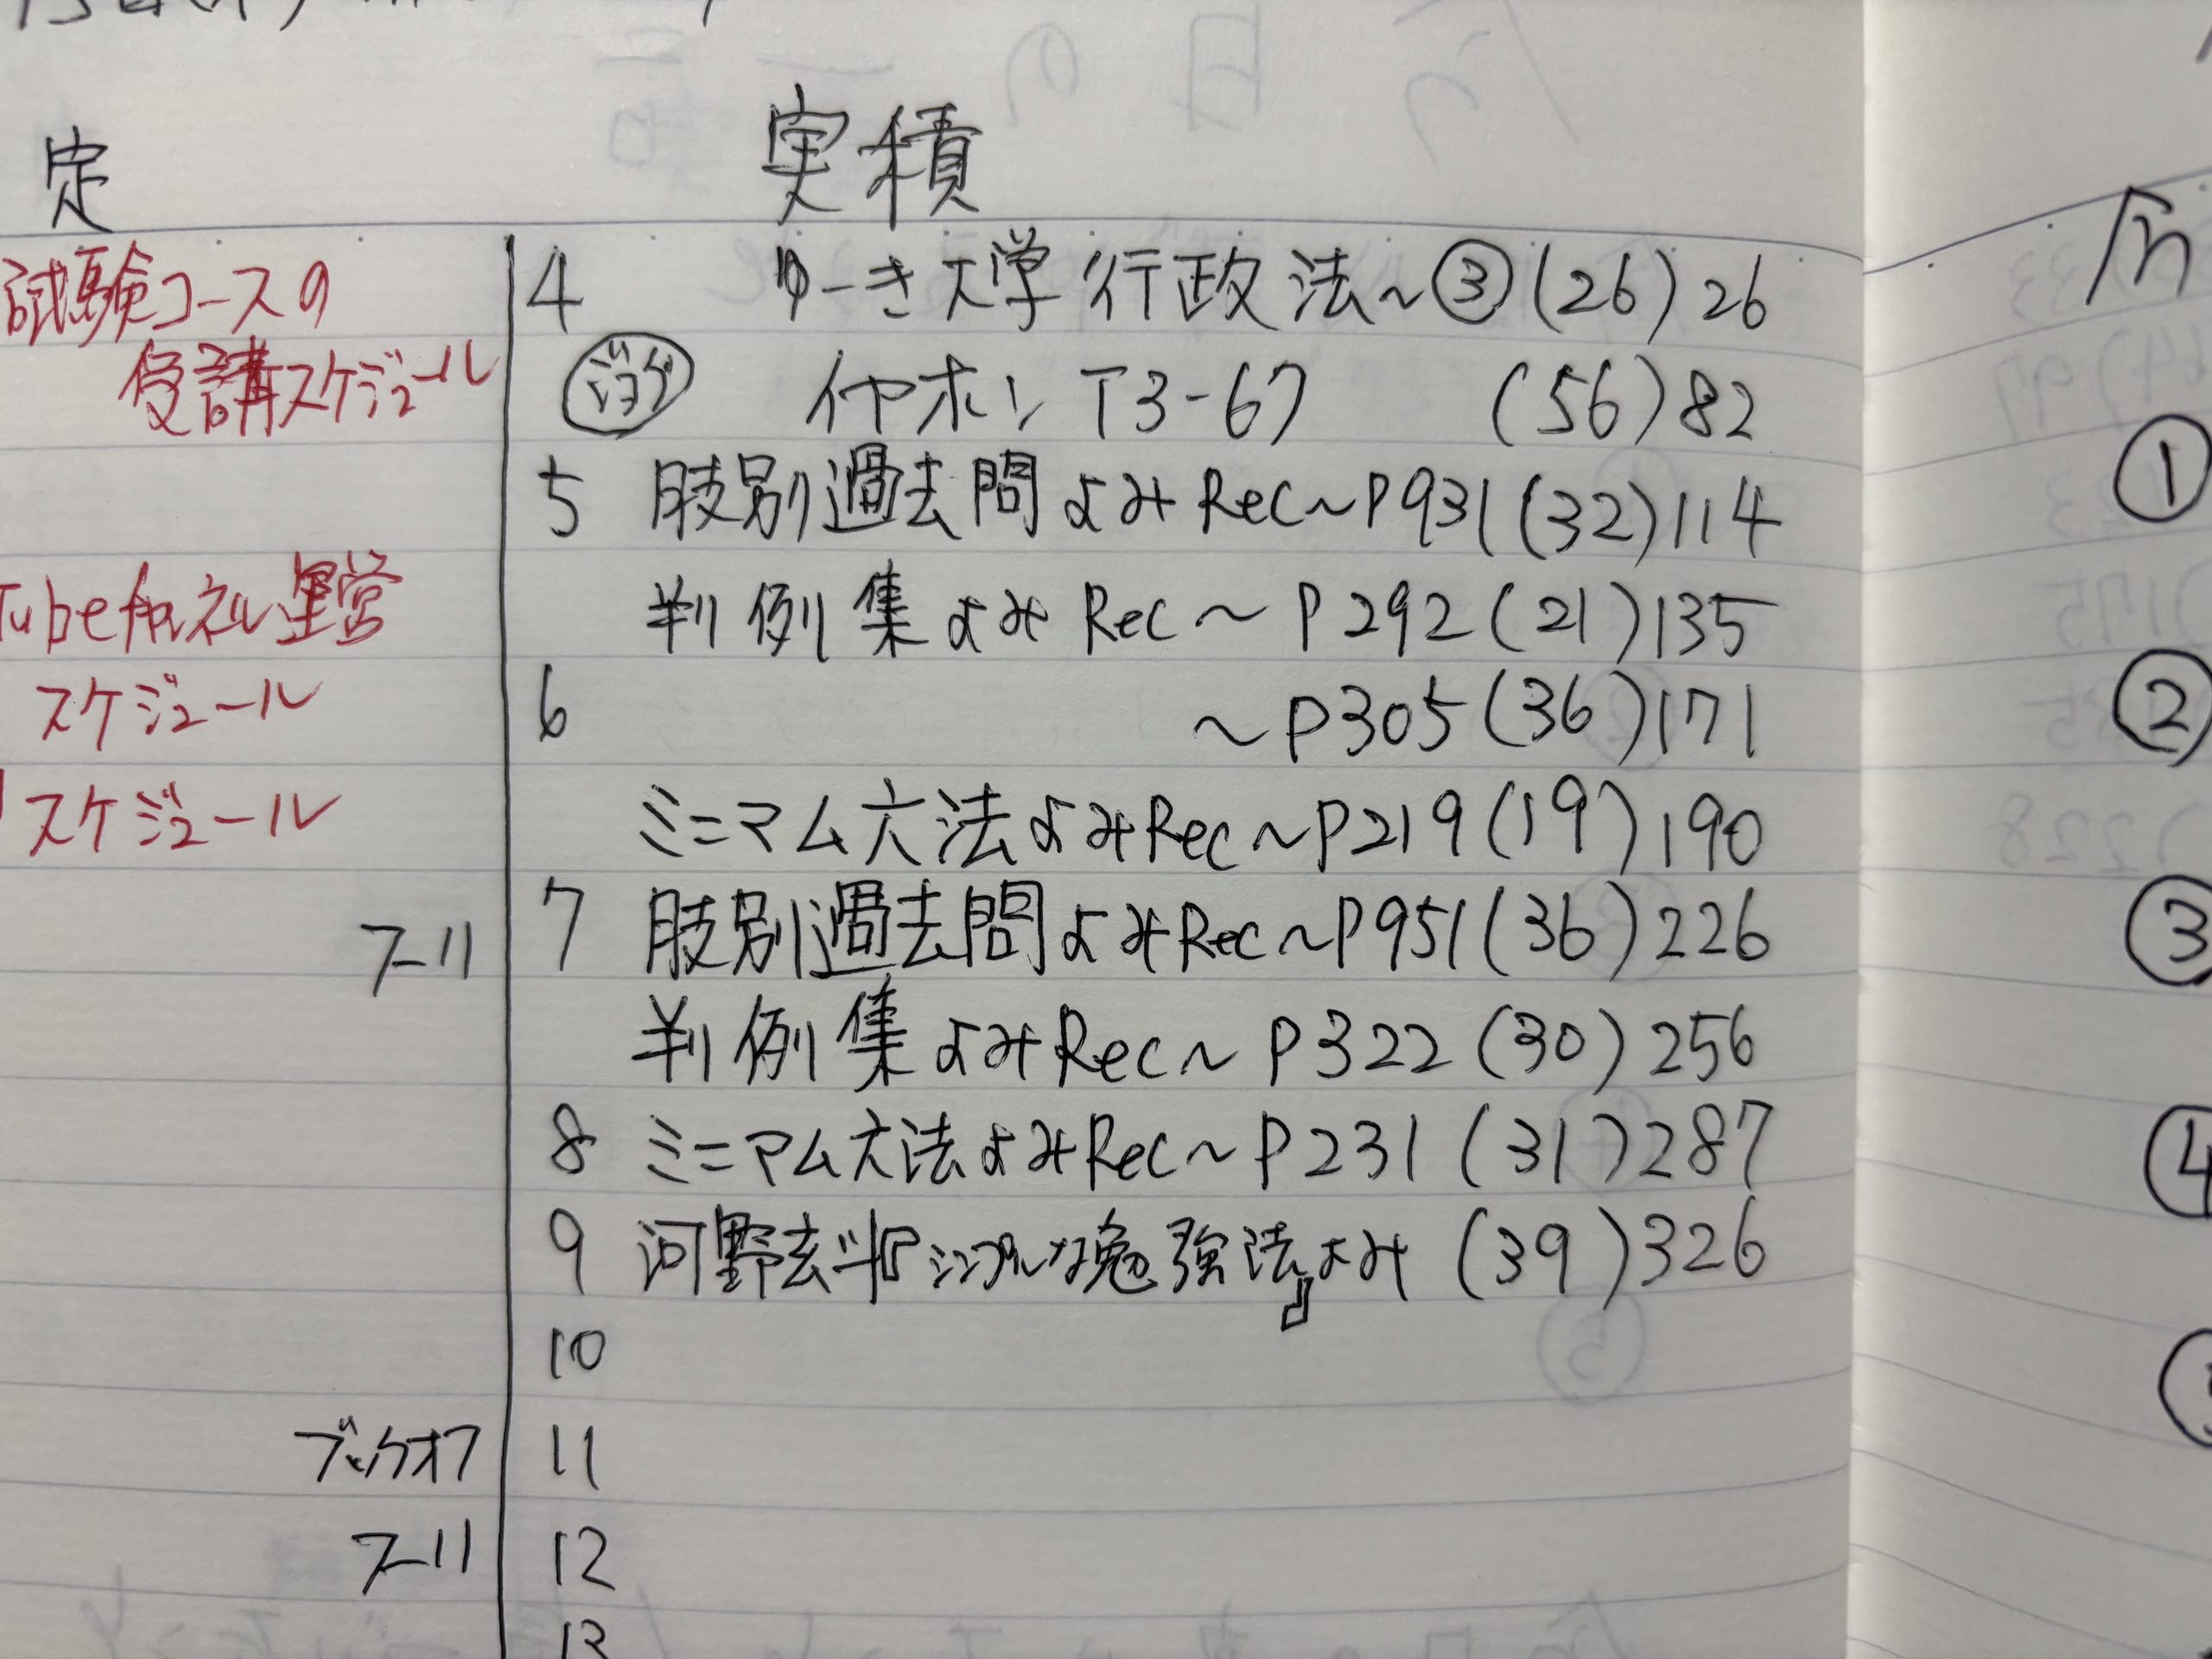 定
実積
試験コースの
受講スケジュール
Tubeチャンネル運営
スケジュール
スケジュール
ブックオフ
4 ゆーき大学行政法～③(26)26
ジョグ イヤホン T3-67 (56)82
5 肢別過去問よみRec～P931(32)114
判例集よみRec～P292(21)135
6 ～P305(36)171
ミニマム六法よみRec～P219(19)190
7 肢別過去問よみRec～P951(36)226
判例集よみRec～P322(30)256
8 ミニマム六法よみRec～P231(31)287
9 河野玄斗『シンプルな勉強法』よみ(39)326
10
11
12
13
①
②
③
④